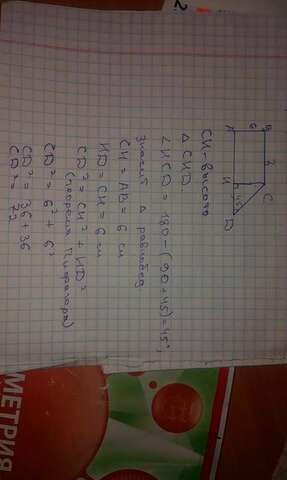 B 3 C
6
45
A H D
CH-высота
△ CHD.
∠HCD = 180 - (90+45) = 45°,
значит △ равнобед
CH = AB = 6 см
HD = CH = 6 см
CD² = CH² + HD²
(теорема Пифагора)
CD² = 6² + 6²
CD² = 36 + 36
CD² = 72
МЕТРИЯ
2